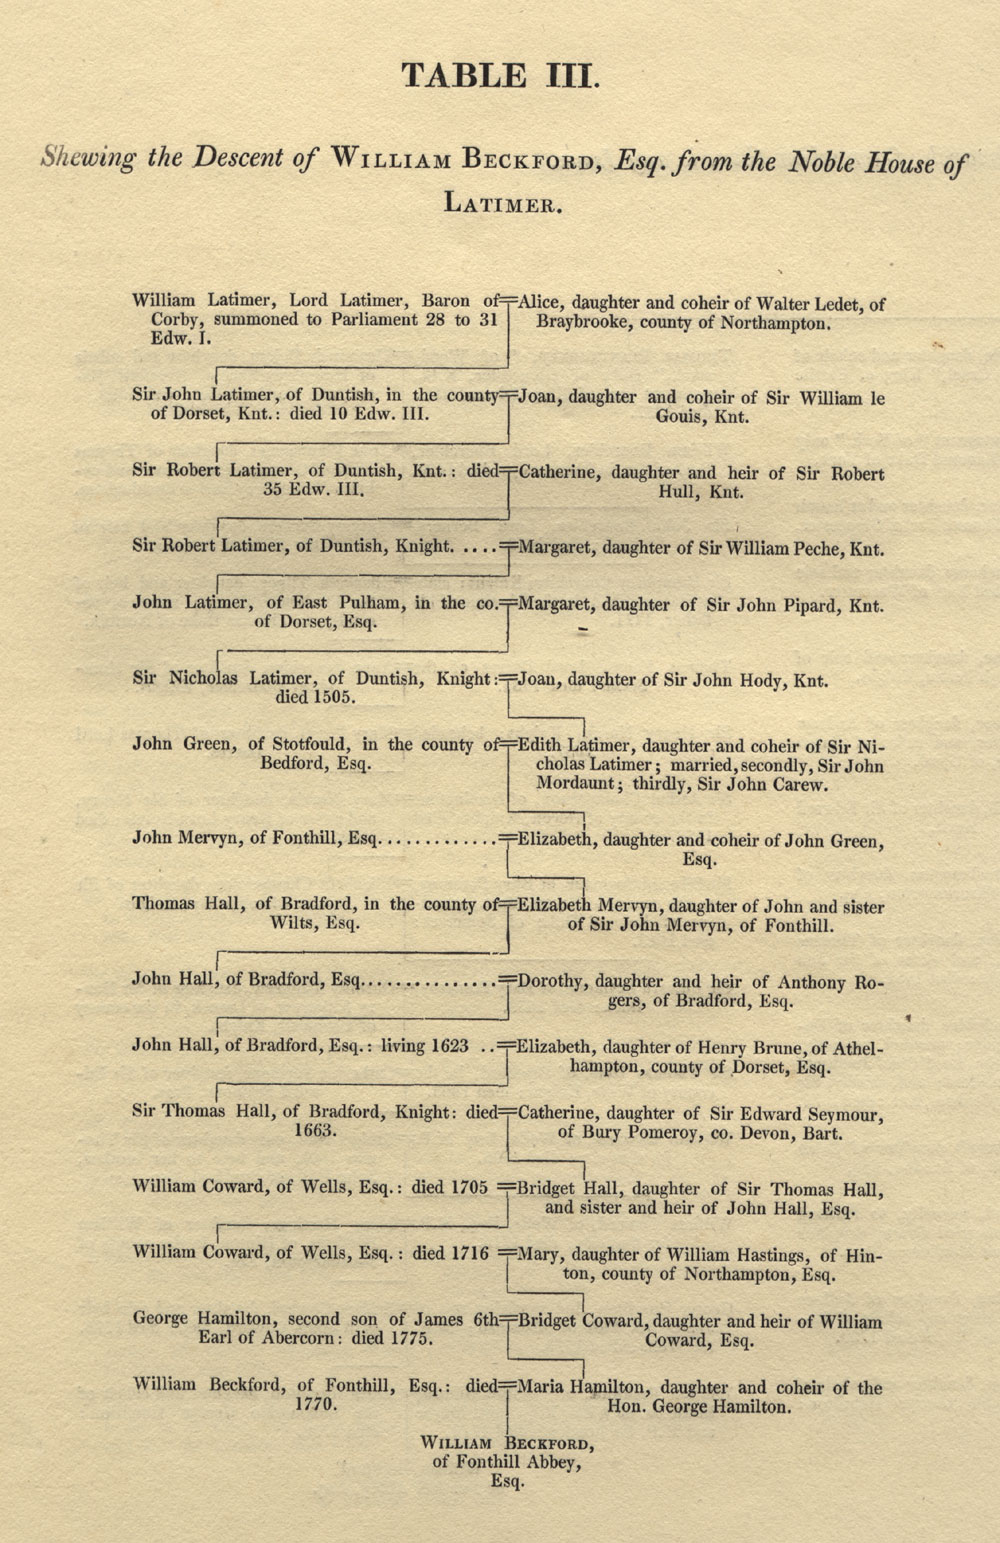 TABLE III.
Shewing the Descent of WILLIAM BECKFORD, Esq. from the Noble House of
LATIMER.
William Latimer, Lord Latimer, Baron of
Corby, summoned to Parliament 28 to 31
Edw. I.
Alice, daughter and coheir of Walter Ledet, of
Braybrooke, county of Northampton.
Sir John Latimer, of Duntish, in the county
of Dorset, Knt.: died 10 Edw. III.
Joan, daughter and coheir of Sir William le
Gouis, Knt.
Sir Robert Latimer, of Duntish, Knt.: died
35 Edw. III.
Catherine, daughter and heir of Sir Robert
Hull, Knt.
Sir Robert Latimer, of Duntish, Knight. ....
Margaret, daughter of Sir William Peche, Knt.
John Latimer, of East Pulham, in the co.
of Dorset, Esq.
Margaret, daughter of Sir John Pipard, Knt.
Sir Nicholas Latimer, of Duntish, Knight:
died 1505.
Joan, daughter of Sir John Hody, Knt.
John Green, of Stotfould, in the county of
Bedford, Esq.
Edith Latimer, daughter and coheir of Sir Ni-
cholas Latimer; married, secondly, Sir John
Mordaunt; thirdly, Sir John Carew.
John Mervyn, of Fonthill, Esq.............
Elizabeth, daughter and coheir of John Green,
Esq.
Thomas Hall, of Bradford, in the county of
Wilts, Esq.
Elizabeth Mervyn, daughter of John and sister
of Sir John Mervyn, of Fonthill.
John Hall, of Bradford, Esq...............
Dorothy, daughter and heir of Anthony Ro-
gers, of Bradford, Esq.
John Hall, of Bradford, Esq.: living 1623 ..
Elizabeth, daughter of Henry Brune, of Athel-
hampton, county of Dorset, Esq.
Sir Thomas Hall, of Bradford, Knight: died
1663.
Catherine, daughter of Sir Edward Seymour,
of Bury Pomeroy, co. Devon, Bart.
William Coward, of Wells, Esq.: died 1705
Bridget Hall, daughter of Sir Thomas Hall,
and sister and heir of John Hall, Esq.
William Coward, of Wells, Esq.: died 1716
Mary, daughter of William Hastings, of Hin-
ton, county of Northampton, Esq.
George Hamilton, second son of James 6th
Earl of Abercorn: died 1775.
Bridget Coward, daughter and heir of William
Coward, Esq.
William Beckford, of Fonthill, Esq.: died
1770.
Maria Hamilton, daughter and coheir of the
Hon. George Hamilton.
WILLIAM BECKFORD,
of Fonthill Abbey,
Esq.